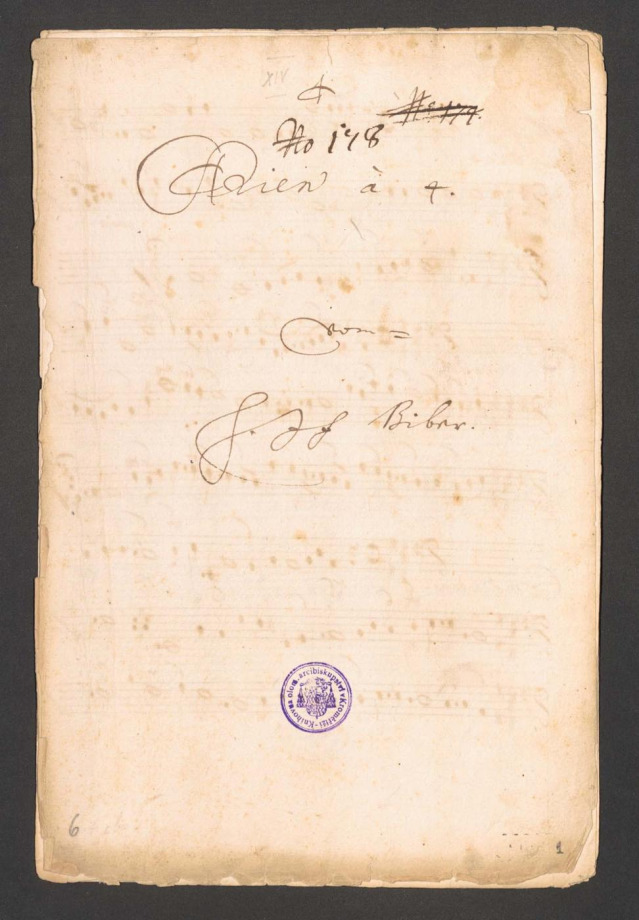 XIV
4
No 178 No 174.
Arien à 4.
Vom =
H. Biber.
Knihovna olom. arcibiskupství v Kroměříži
6
1